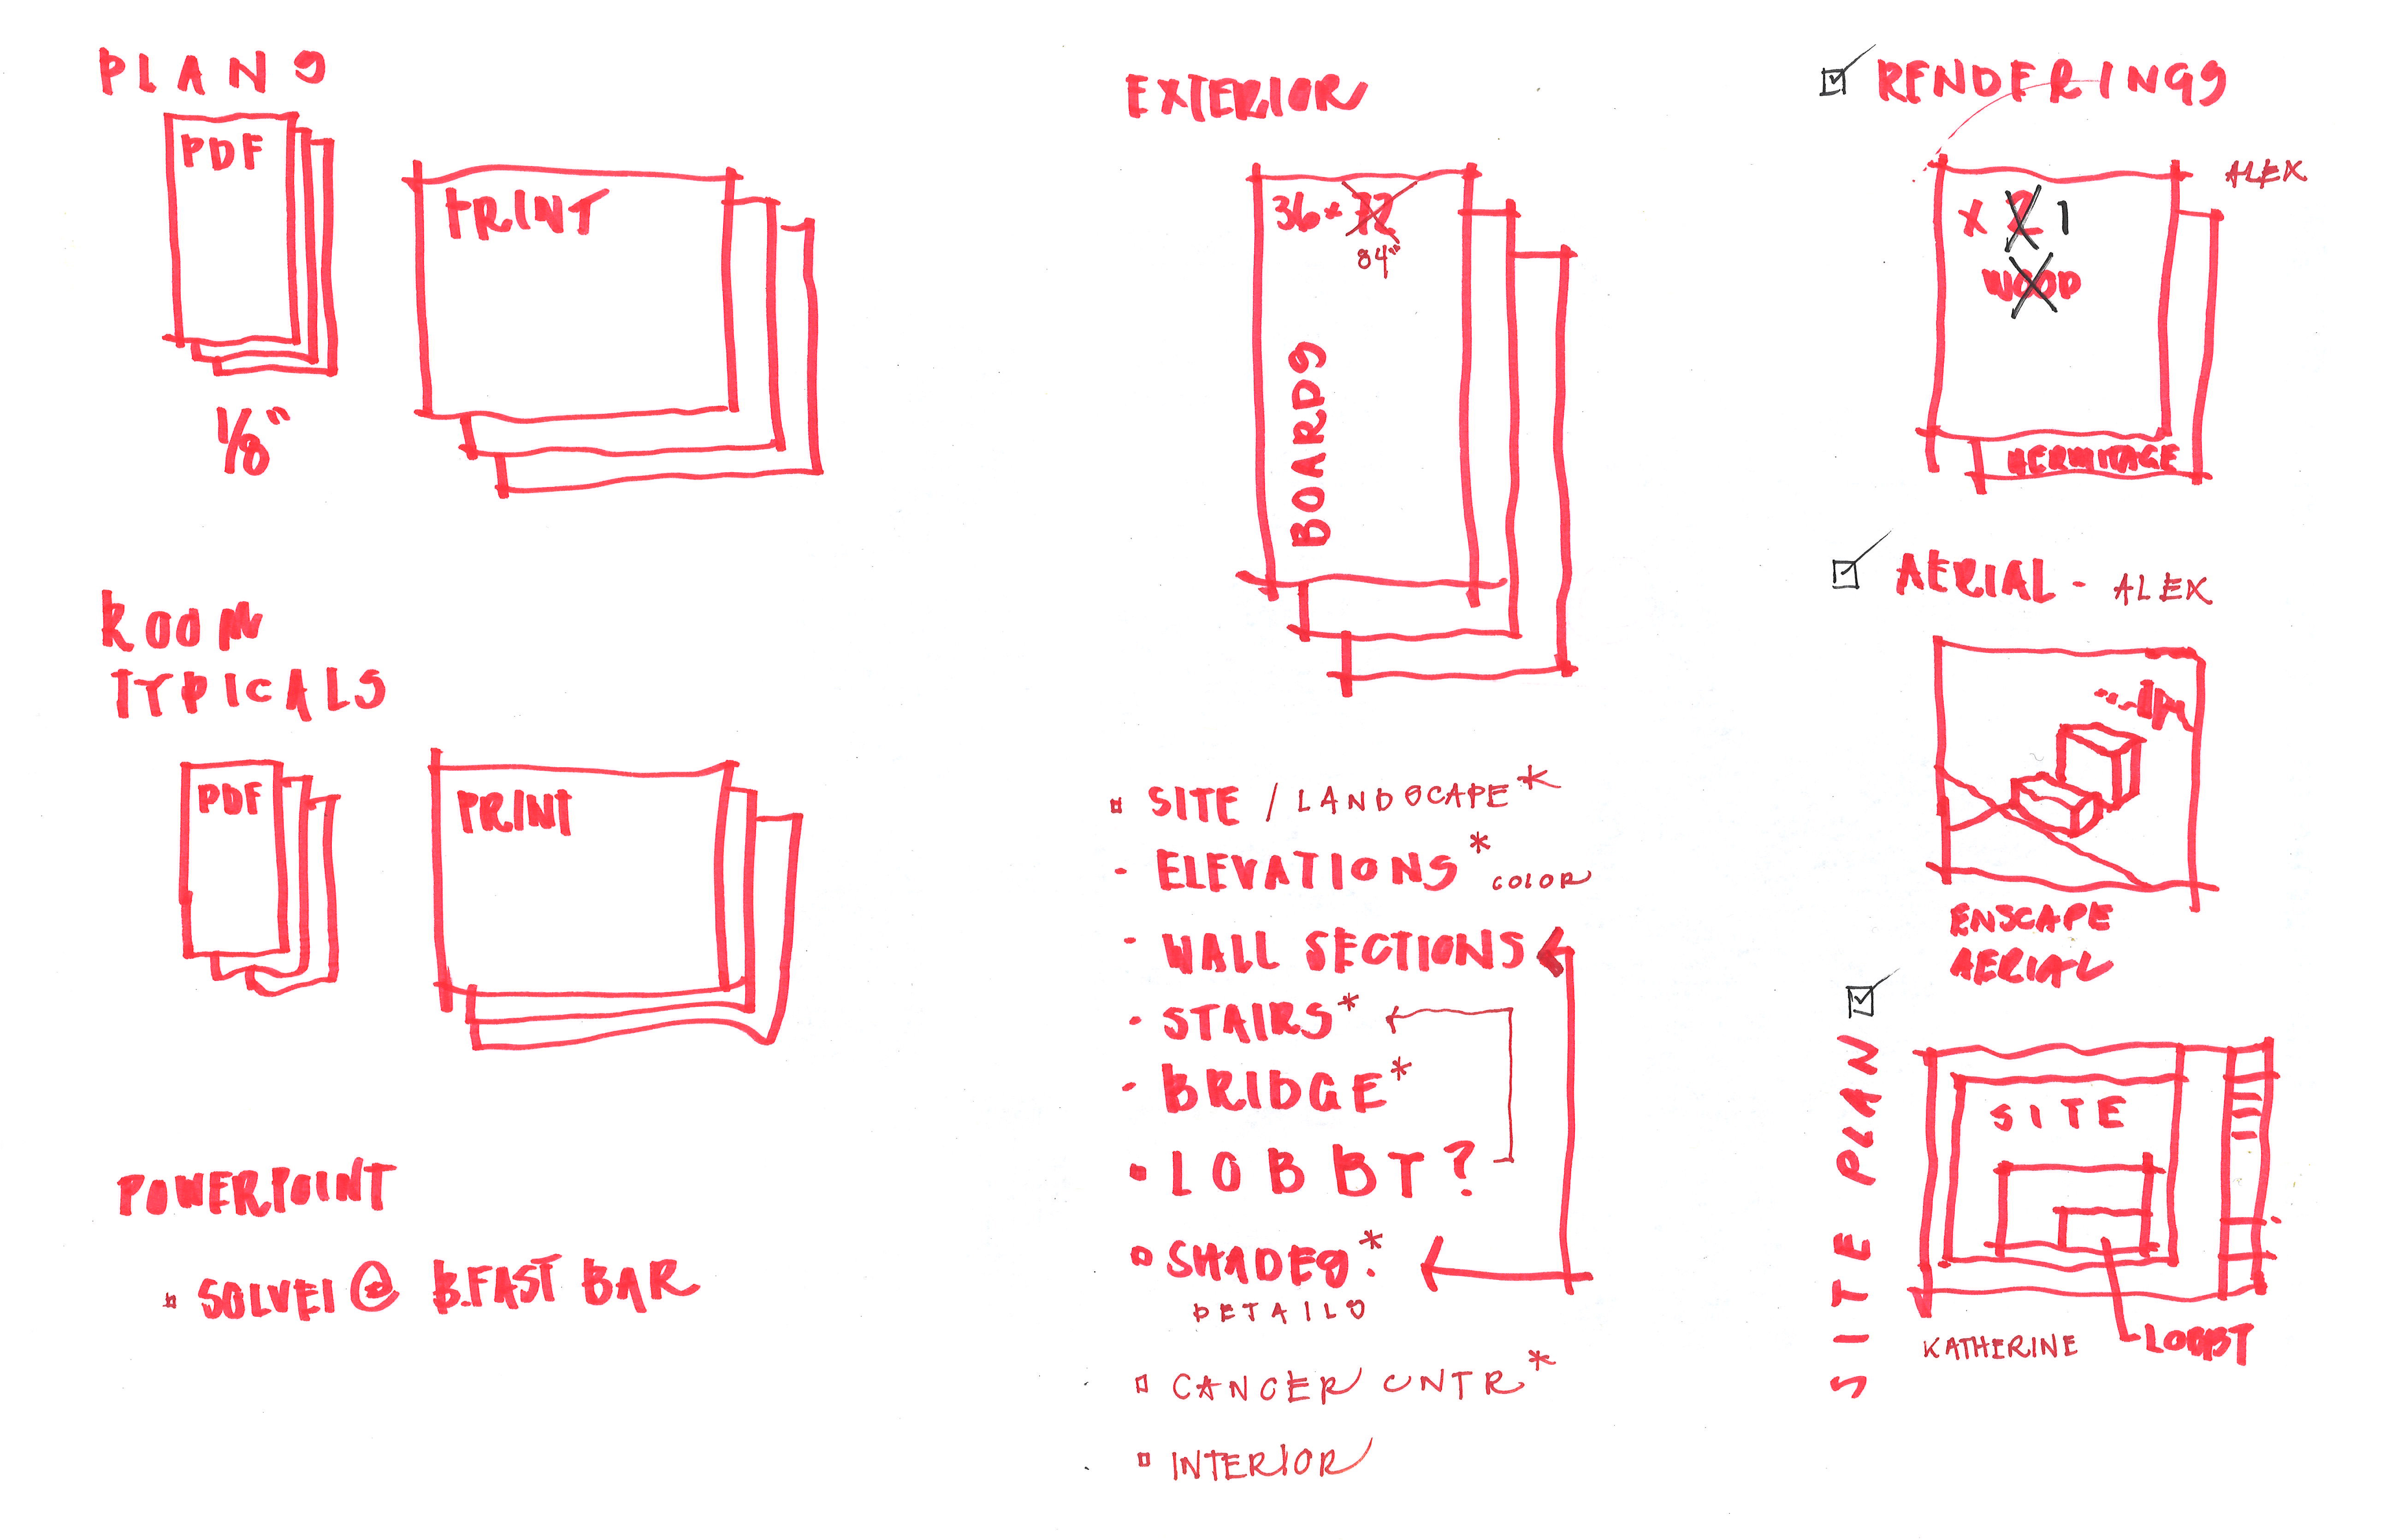 PLANS
PDF
PRINT
1/8"
ROOM
TYPICALS
PDF
PRINT
POWERPOINT
SOLVEI @ B.FAST BAR
EXTERIOR
36 x 72
84"
BOARDS
SITE / LANDSCAPE*
- ELEVATIONS* COLOR
- WALL SECTIONS
- STAIRS*
- BRIDGE*
LOBBY?
SHADES.*
DETAILS
CANCER CNTR*
INTERIOR
RENDERINGS
ALEX
x 2 1
WOOD
HERMITAGE
AERIAL - ALEX
ENSCAPE
AERIAL
SITE PLAN
SITE
KATHERINE
LOBBY